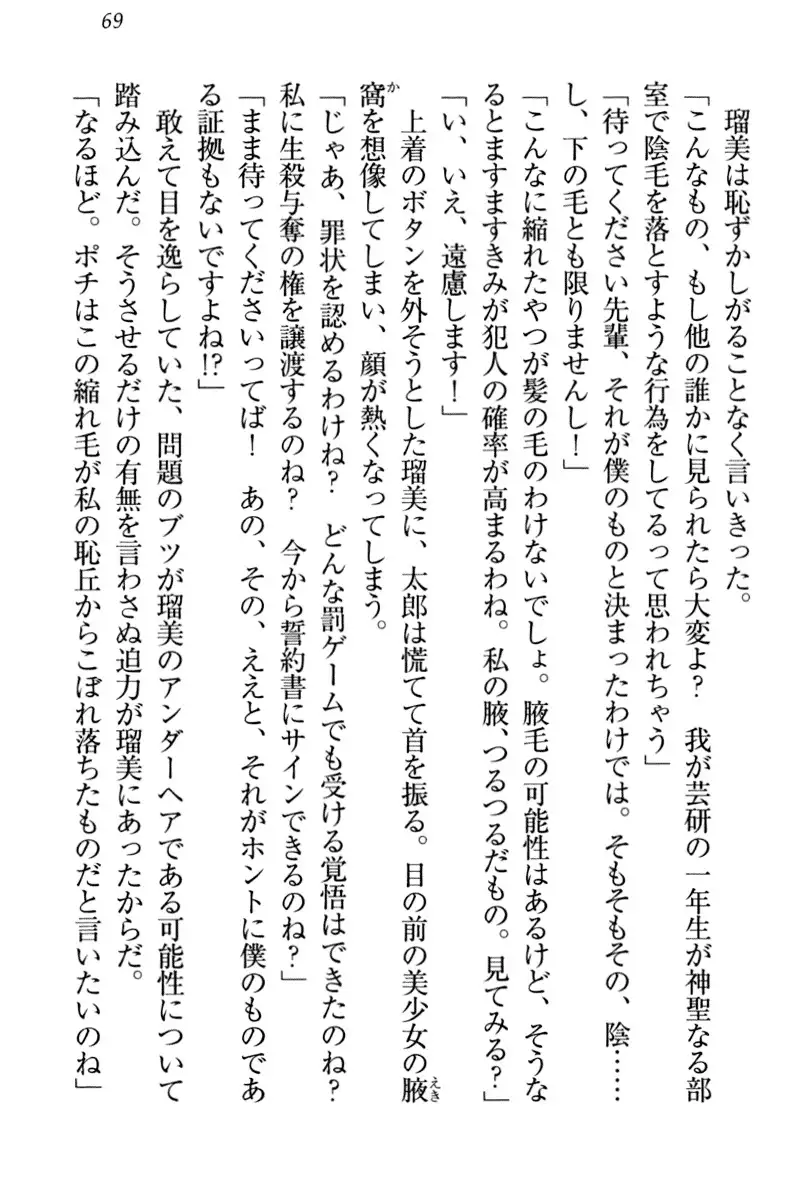 69
瑠美は恥ずかしがることなく言いきった。
「こんなもの、もし他の誰かに見られたら大変よ？　我が芸研の一年生が神聖なる部
室で陰毛を落とすような行為をしてるって思われちゃう」
「待ってください先輩、それが僕のものと決まったわけでは。そもそもその、陰……
し、下の毛とも限りませんし！」
「こんなに縮れたやつが髪の毛のわけないでしょ。腋毛の可能性はあるけど、そうな
るとますますきみが犯人の確率が高まるわね。私の腋、つるつるだもの。見てみる？」
「い、いえ、遠慮します！」
上着のボタンを外そうとした瑠美に、太郎は慌てて首を振る。目の前の美少女の腋
窩を想像してしまい、顔が熱くなってしまう。
「じゃあ、罪状を認めるわけね？　どんな罰ゲームでも受ける覚悟はできたのね？
私に生殺与奪の権を譲渡するのね？　今から誓約書にサインできるのね？」
「まま待ってくださいってば！　あの、その、ええと、それがホントに僕のものであ
る証拠もないですよね!?」
敢えて目を逸らしていた、問題のブツが瑠美のアンダーヘアである可能性について
踏み込んだ。そうさせるだけの有無を言わさぬ迫力が瑠美にあったからだ。
「なるほど。ポチはこの縮れ毛が私の恥丘からこぼれ落ちたものだと言いたいのね」